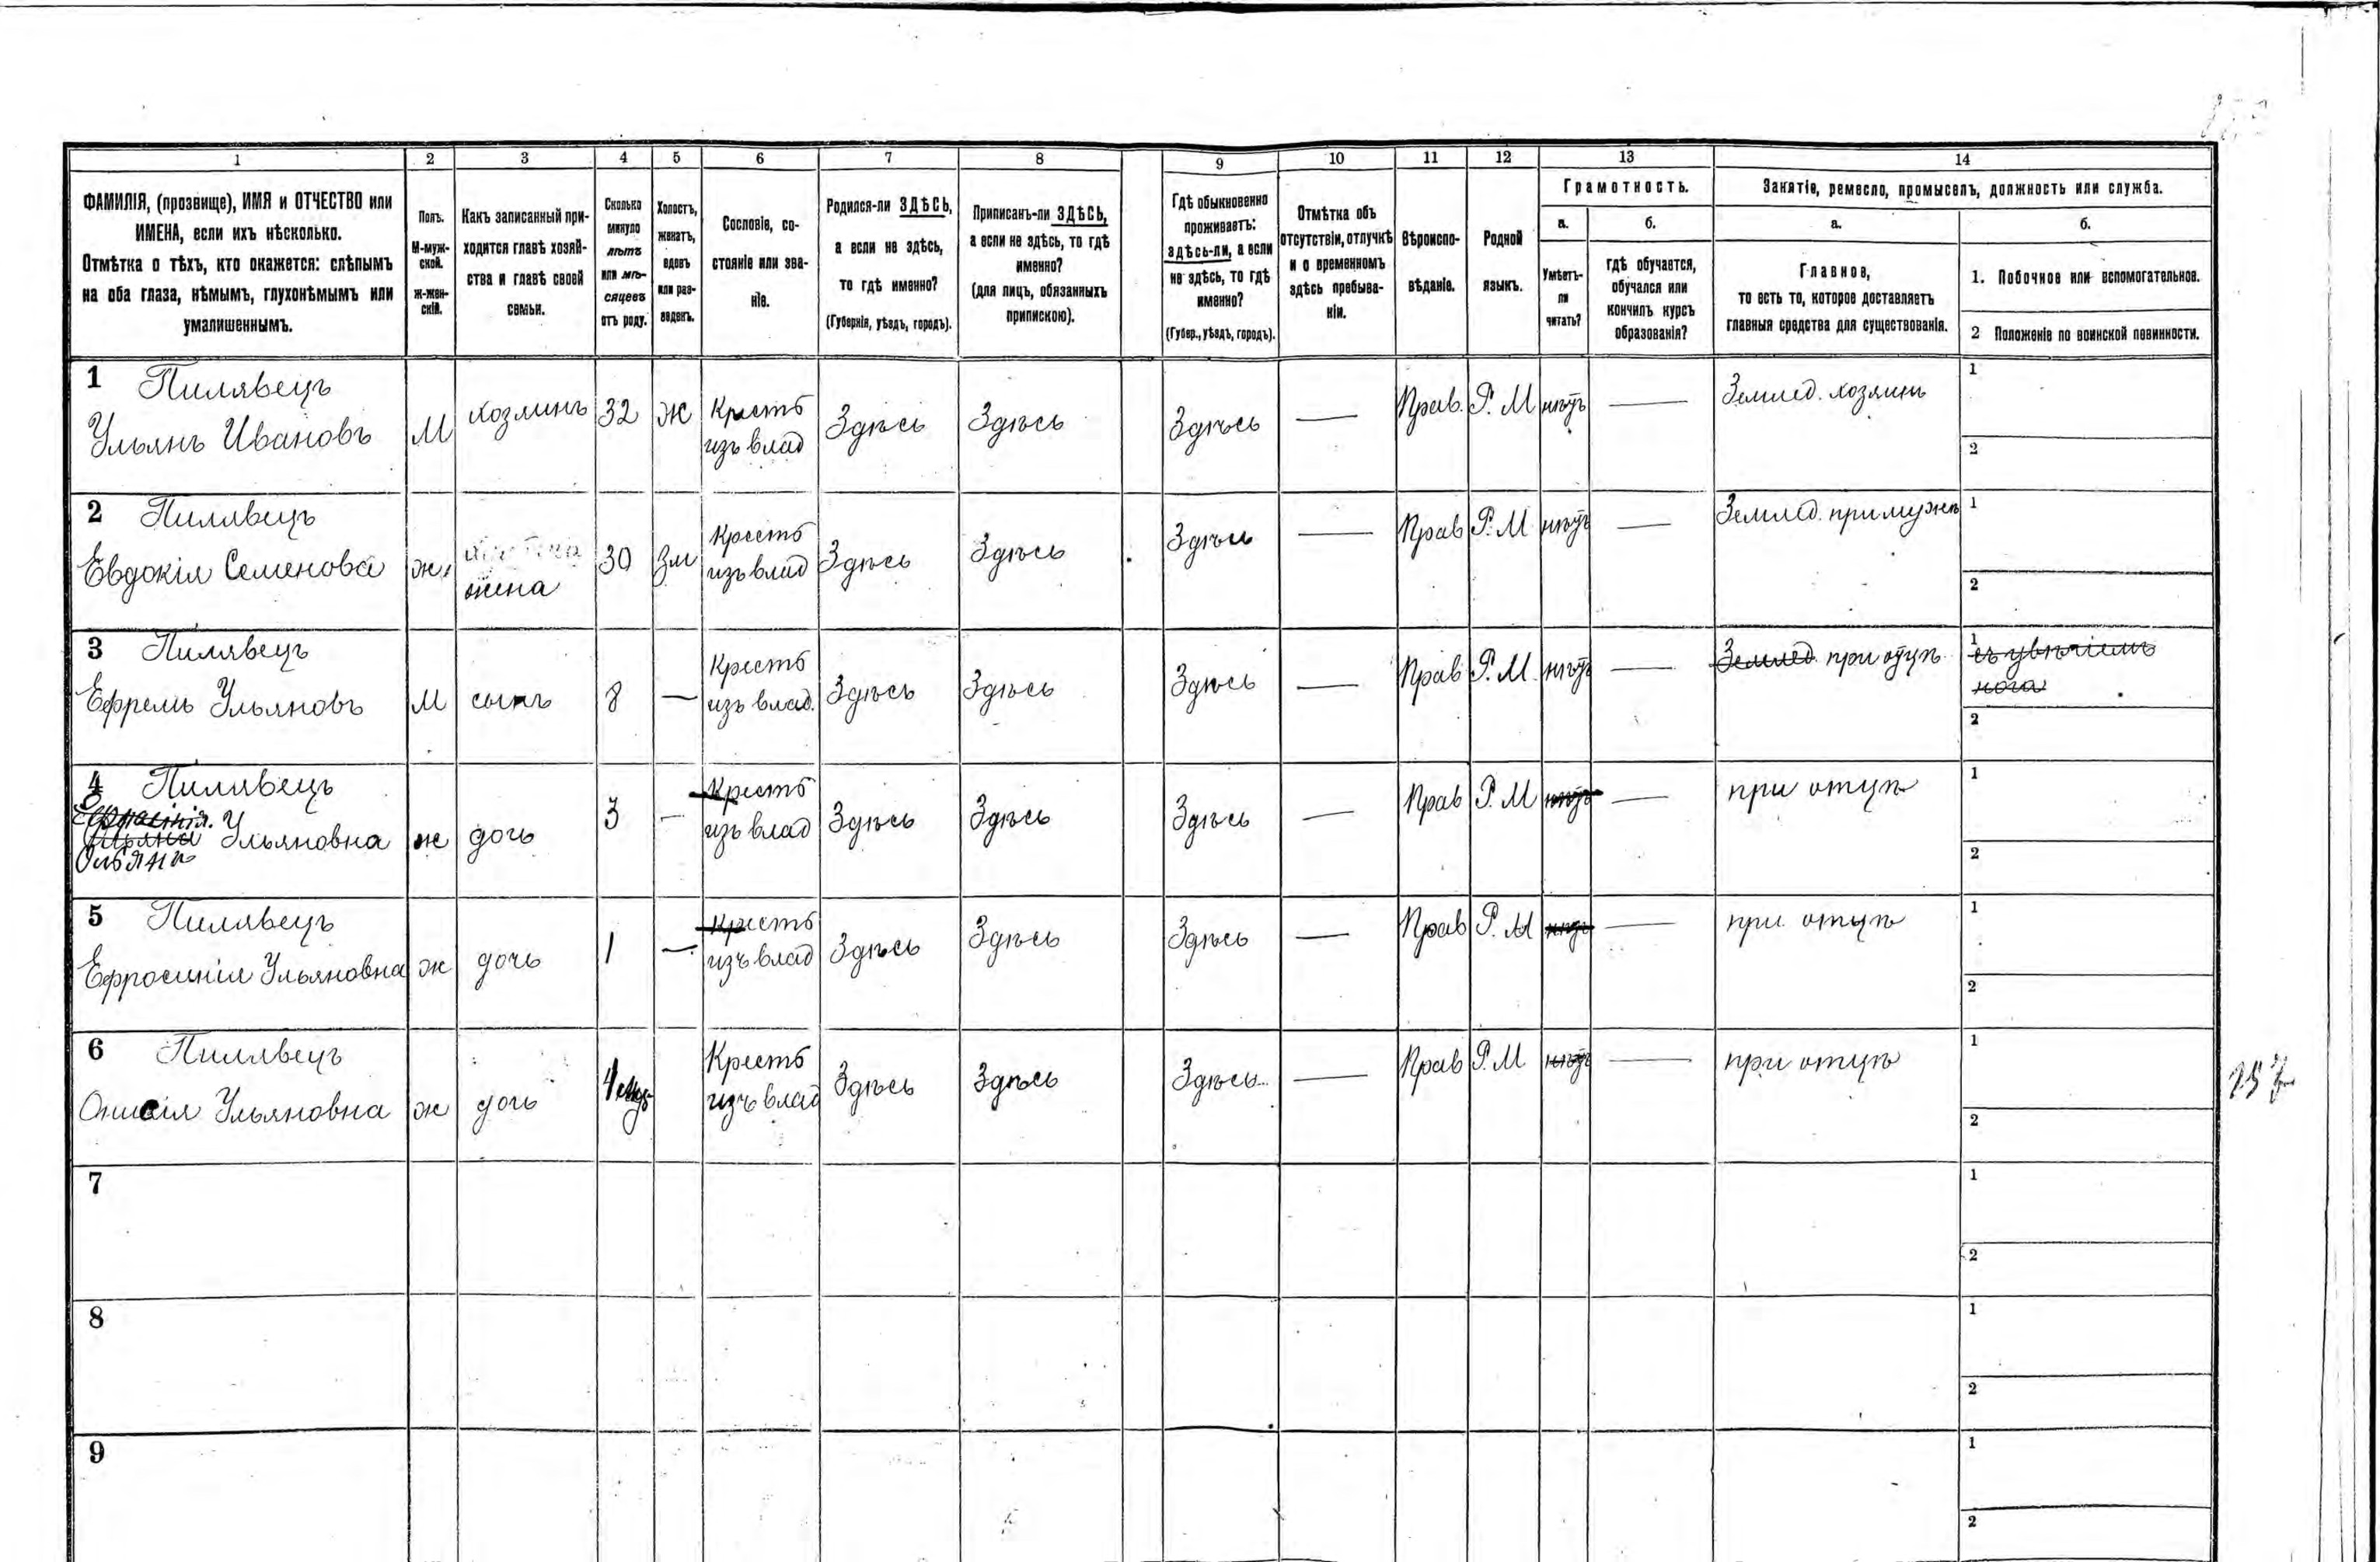 1 2 3 4 5 6 7 8 9 10 11 12 13 14
ФАМИЛІЯ, (прозвище), ИМЯ и ОТЧЕСТВО или
ИМЕНА, если ихъ нѣсколько.
Отмѣтка о тѣхъ, кто окажется: слѣпымъ
на оба глаза, нѣмымъ, глухонѣмымъ или
умалишеннымъ.
Полъ.
М-муж-
ской.
ж-жен-
скій.
Какъ записанный при-
ходится главѣ хозяй-
ства и главѣ своей
семьи.
Сколько
минуло
лѣтъ
или мѣ-
сяцевъ
отъ роду.
Холостъ,
женатъ,
вдовъ
или раз-
веденъ.
Сословіе, со-
стояніе или зва-
ніе.
Родился-ли ЗДѢСЬ,
а если не здѣсь,
то гдѣ именно?
(Губернія, уѣздъ, городъ).
Приписанъ-ли ЗДѢСЬ,
а если не здѣсь, то гдѣ
именно?
(для лицъ, обязанныхъ
припискою).
Гдѣ обыкновенно
проживаетъ:
здѣсь-ли, а если
не здѣсь, то гдѣ
именно?
(Губер., уѣздъ, городъ).
Отмѣтка объ
отсутствіи, отлучкѣ
и о временномъ
здѣсь пребыва-
ніи.
Вѣроиспо-
вѣданіе.
Родной
языкъ.
Грамотность.
а.
Умѣетъ-
ли
читать?
б.
гдѣ обучается,
обучался или
кончилъ курсъ
образованія?
Занятіе, ремесло, промыселъ, должность или служба.
а.
Главное,
то есть то, которое доставляетъ
главныя средства для существованія.
б.
1. Побочное или вспомогательное.
2 Положеніе по воинской повинности.
1 Пилявецъ
Ульянъ Ивановъ М хозяинъ 32 Ж Крестб
изъ влад Здѣсь Здѣсь Здѣсь — Прав. Р. М нѣтъ — Землед. хозяинъ 1
2
2 Пилявецъ
Евдокія Семенова ж.
жена 30 Зм Крестб
изъ влад Здѣсь Здѣсь Здѣсь — Прав Р. М нѣтъ — Землед. при мужѣ 1
2
3 Пилявецъ
Ефремъ Ульяновъ М сынъ 8 — Крестб
изъ влад. Здѣсь Здѣсь Здѣсь — Прав Р. М. нѣтъ — Землед. при отцѣ 1 съ увѣчіемъ
нога
2
4 Пилявецъ
Ульяновна ж дочь 3 — Крестб
изъ влад Здѣсь Здѣсь Здѣсь — Прав Р. М нѣтъ — при отцѣ 1
2
5 Пилявецъ
Ефросинія Ульяновна ж дочь 1 — Крестб
изъ влад Здѣсь Здѣсь Здѣсь — Прав Р. М нѣтъ — при отцѣ 1
2
6 Пилявецъ
Онисія Ульяновна ж дочь Крестб
изъ влад Здѣсь Здѣсь Здѣсь — Прав Р. М нѣтъ — при отцѣ 1
2
7 1
2
8 1
2
9 1
2